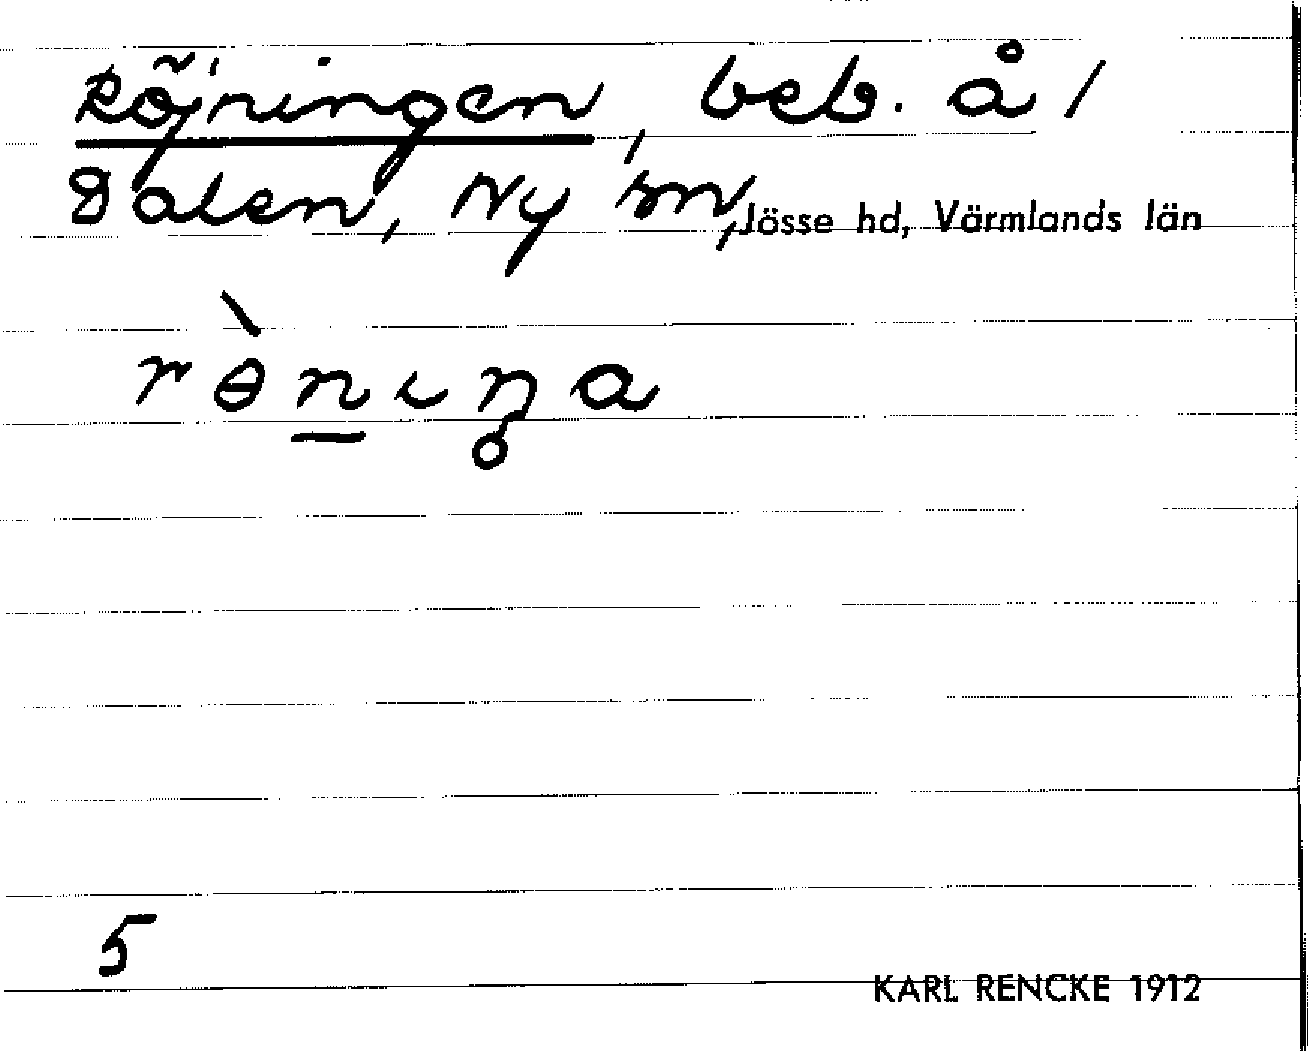 Röjningen, beb. å 1
8 alen, Ny sn, Jösse hd, Värmlands län
rö̀niŋa
5
KARL RENCKE 1912